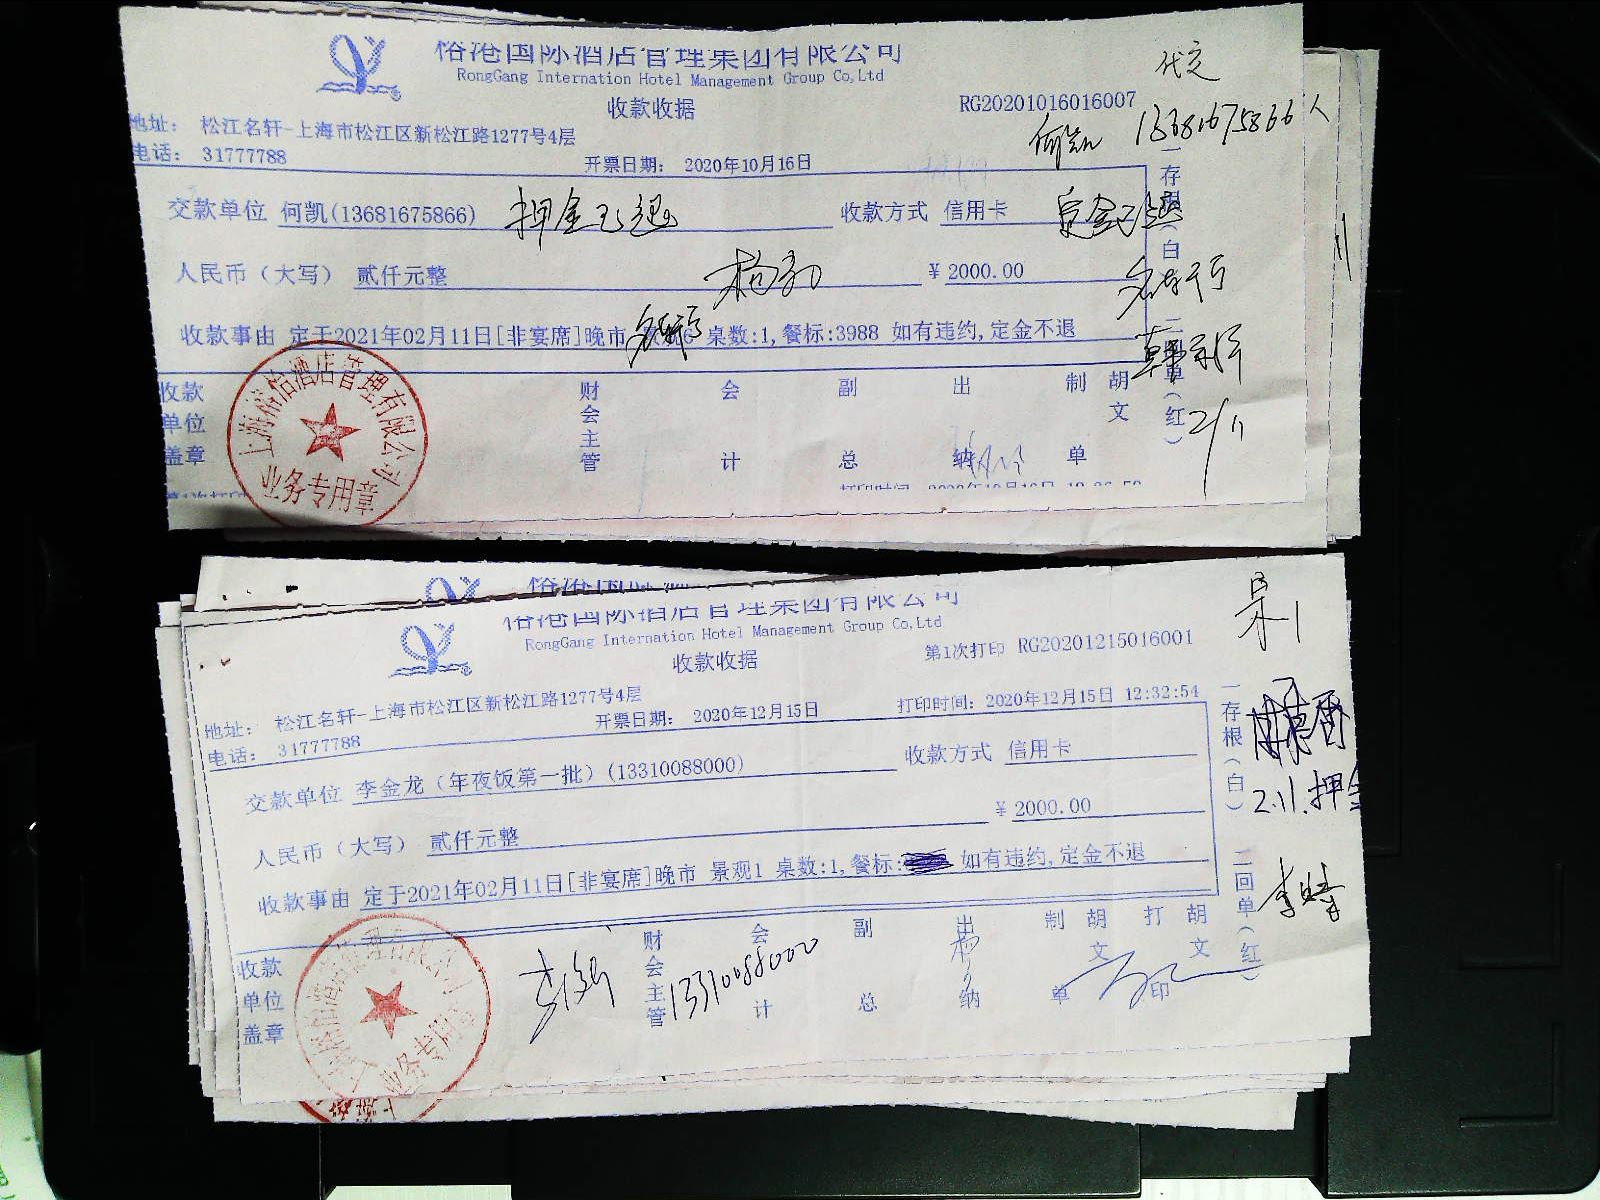 裕港国际酒店管理集团有限公司
RongGang Internation Hotel Management Group Co,Ltd
代定
收款收据
RG20201016016007
何凯 13681675866
地址: 松江名轩-上海市松江区新松江路1277号4层
电话: 31777788
开票日期: 2020年10月16日
交款单位 何凯(13681675866) 押金已退 收款方式 信用卡 定金已退
人民币(大写) 贰仟元整 ¥2000.00
收款事由 定于2021年02月11日[非宴席]晚市 桌数:1,餐标:3988 如有违约,定金不退
一存根(白) 二回单(红)
收款单位盖章 财会主管 会计 副总 出纳 制单 胡文
2/11
上海裕怡酒店管理有限公司
业务专用章
裕港国际酒店管理集团有限公司
RongGang Internation Hotel Management Group Co,Ltd
收款收据
第1次打印 RG20201215016001
地址: 松江名轩-上海市松江区新松江路1277号4层
电话: 31777788
开票日期: 2020年12月15日
打印时间: 2020年12月15日 12:32:54
交款单位 李金龙(年夜饭第一批)(13310088000) 收款方式 信用卡
人民币(大写) 贰仟元整 ¥2000.00
2.11.押金
收款事由 定于2021年02月11日[非宴席]晚市 景观1 桌数:1,餐标: 如有违约,定金不退
一存根(白) 二回单(红)
收款单位盖章 财会主管 会计 副总 出纳 制单 胡文 打印 胡文
13310088000
业务专用章